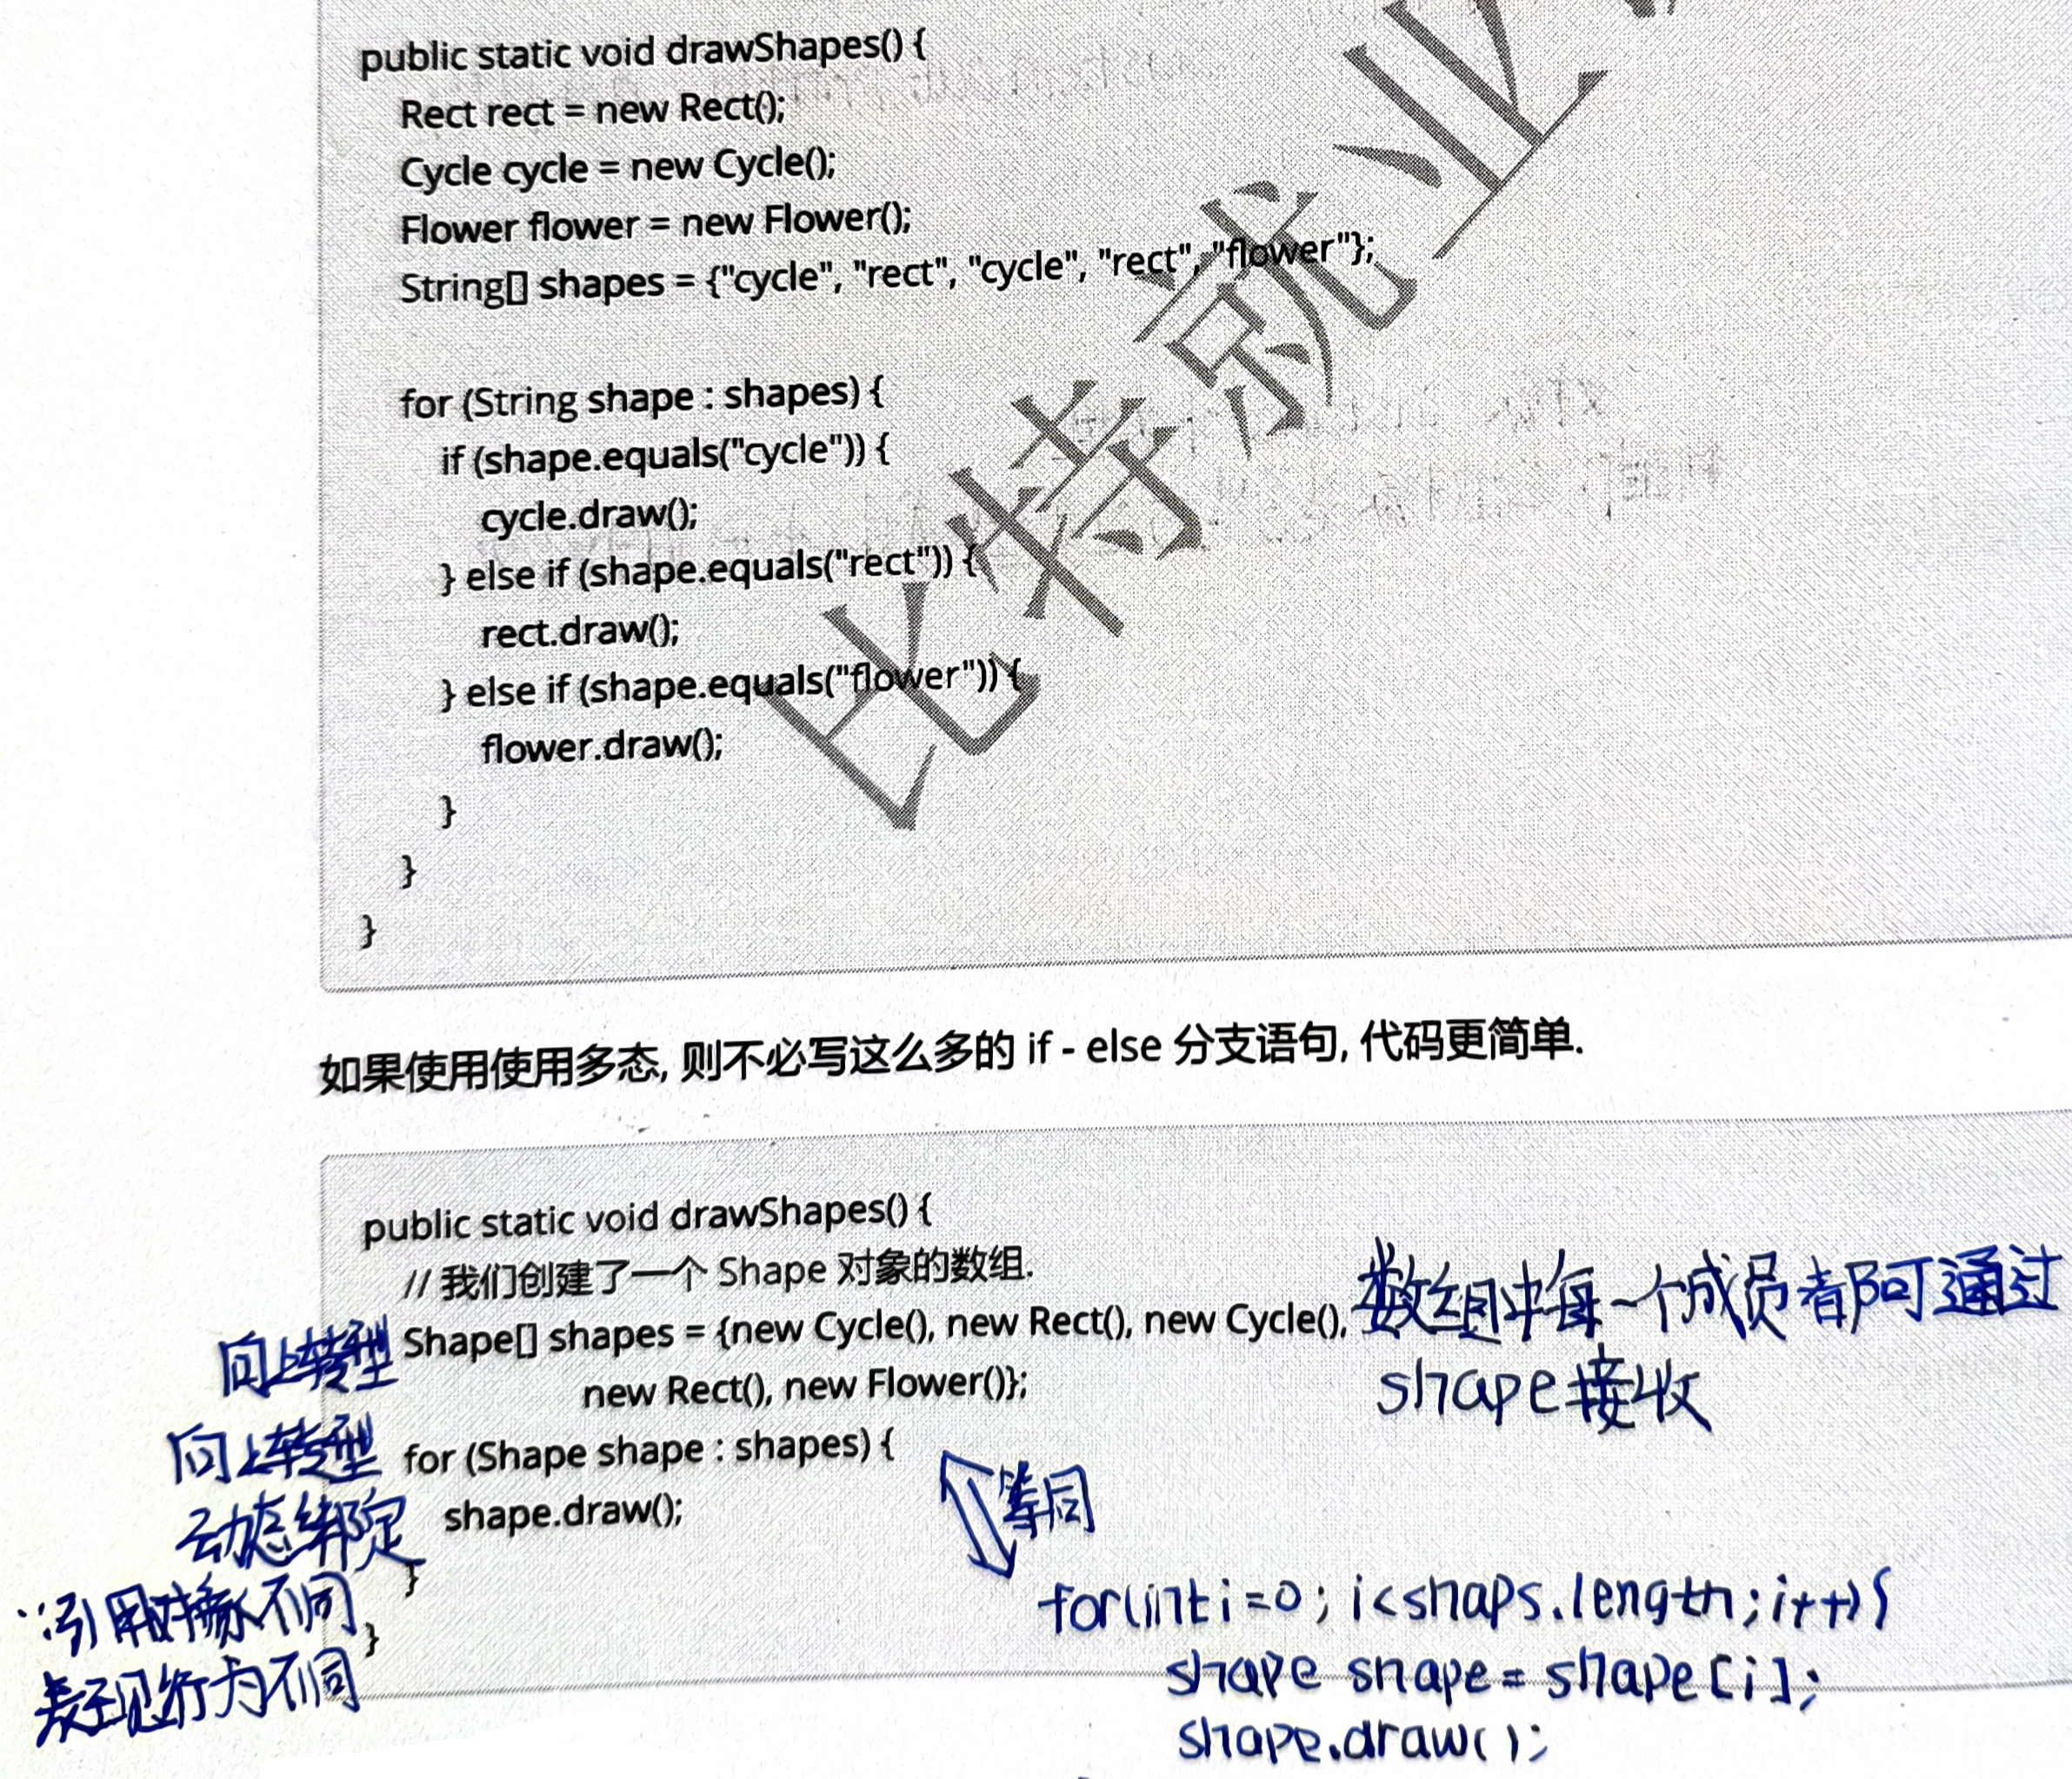 public static void drawShapes() {
Rect rect = new Rect();
Cycle cycle = new Cycle();
Flower flower = new Flower();
String[] shapes = {"cycle", "rect", "cycle", "rect", "flower"};
for (String shape : shapes) {
if (shape.equals("cycle")) {
cycle.draw();
} else if (shape.equals("rect")) {
rect.draw();
} else if (shape.equals("flower")) {
flower.draw();
}
}
}
比特就业
如果使用使用多态, 则不必写这么多的 if - else 分支语句, 代码更简单.
public static void drawShapes() {
// 我们创建了一个 Shape 对象的数组.
向上转型 Shape[] shapes = {new Cycle(), new Rect(), new Cycle(), 数组中每一个成员都可通过
new Rect(), new Flower()}; shape接收
向上转型 for (Shape shape : shapes) {
动态绑定 shape.draw(); 等同
}
∵引用对象不同 for(int i=0; i<shaps.length; i++){
}
表现行为不同 shape shape = shape[i];
shape.draw();